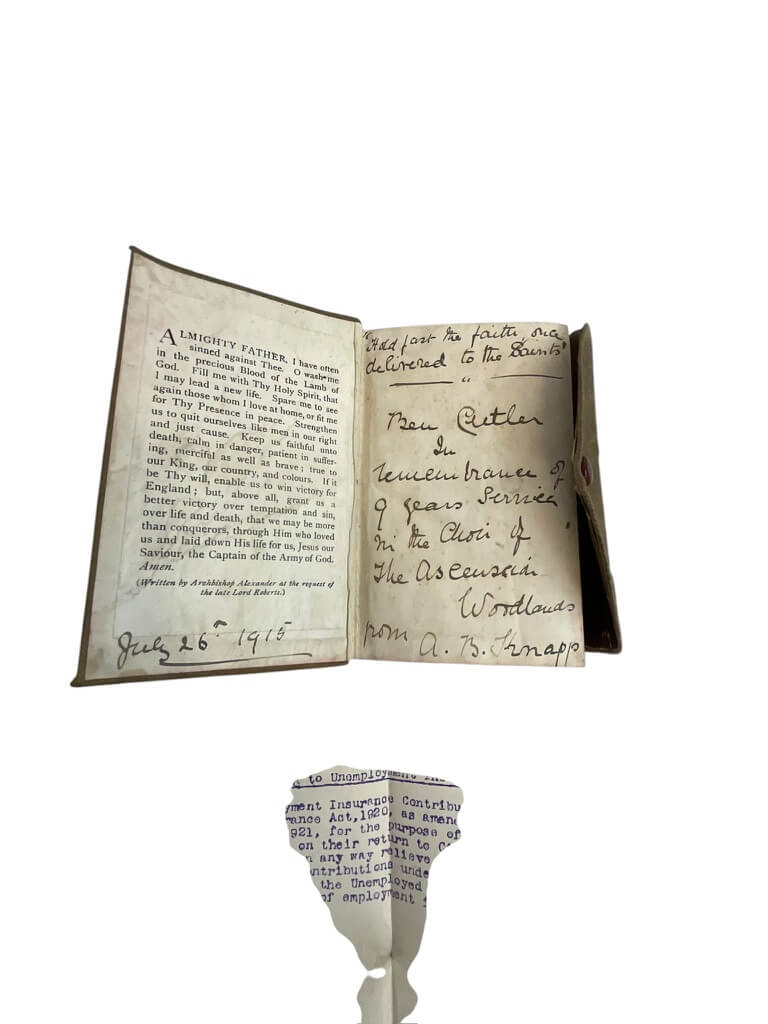 ALMIGHTY FATHER, I have often
sinned against Thee. O wash me
in the precious Blood of the Lamb of
God. Fill me with Thy Holy Spirit, that
I may lead a new life. Spare me to see
again those whom I love at home, or fit me
for Thy Presence in peace. Strengthen
us to quit ourselves like men in our right
and just cause. Keep us faithful unto
death, calm in danger, patient in suffer-
ing, merciful as well as brave; true to
our King, our country, and colours. If it
be Thy will, enable us to win victory for
England; but, above all, grant us a
better victory over temptation and sin,
over life and death, that we may be more
than conquerors, through Him who loved
us and laid down His life for us, Jesus our
Saviour, the Captain of the Army of God.
Amen.
(Written by Archbishop Alexander at the request of
the late Lord Roberts.)
July 26th 1915
"Hold fast the faith, once
delivered to the Saints"
Ben Cutler
In
remembrance of
9 years Service
in the Choir of
The Ascension
Woodlands
from A. B. Knapp
to Unemployment
yment Insurance Contribu
rance Act, 1920, as amen
921, for the purpose of
on their return to
n any way relieve
ntributions unde
the Unemployed
of employment